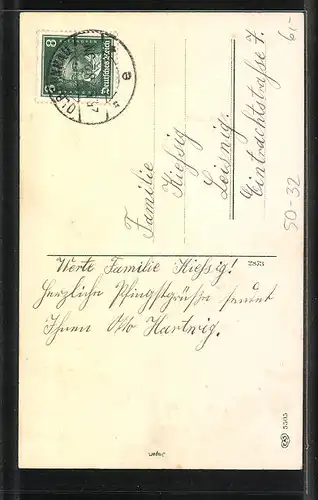 8
Deutsches Reich
e
Familie
Kießig
Leisnig.
Eintrachtstrasse 7.
6,-
50-32
2873
Werte Familie Kießig!
Herzliche Pfingstgrüße sendet
Ihnen Otto Hartwig.
5505